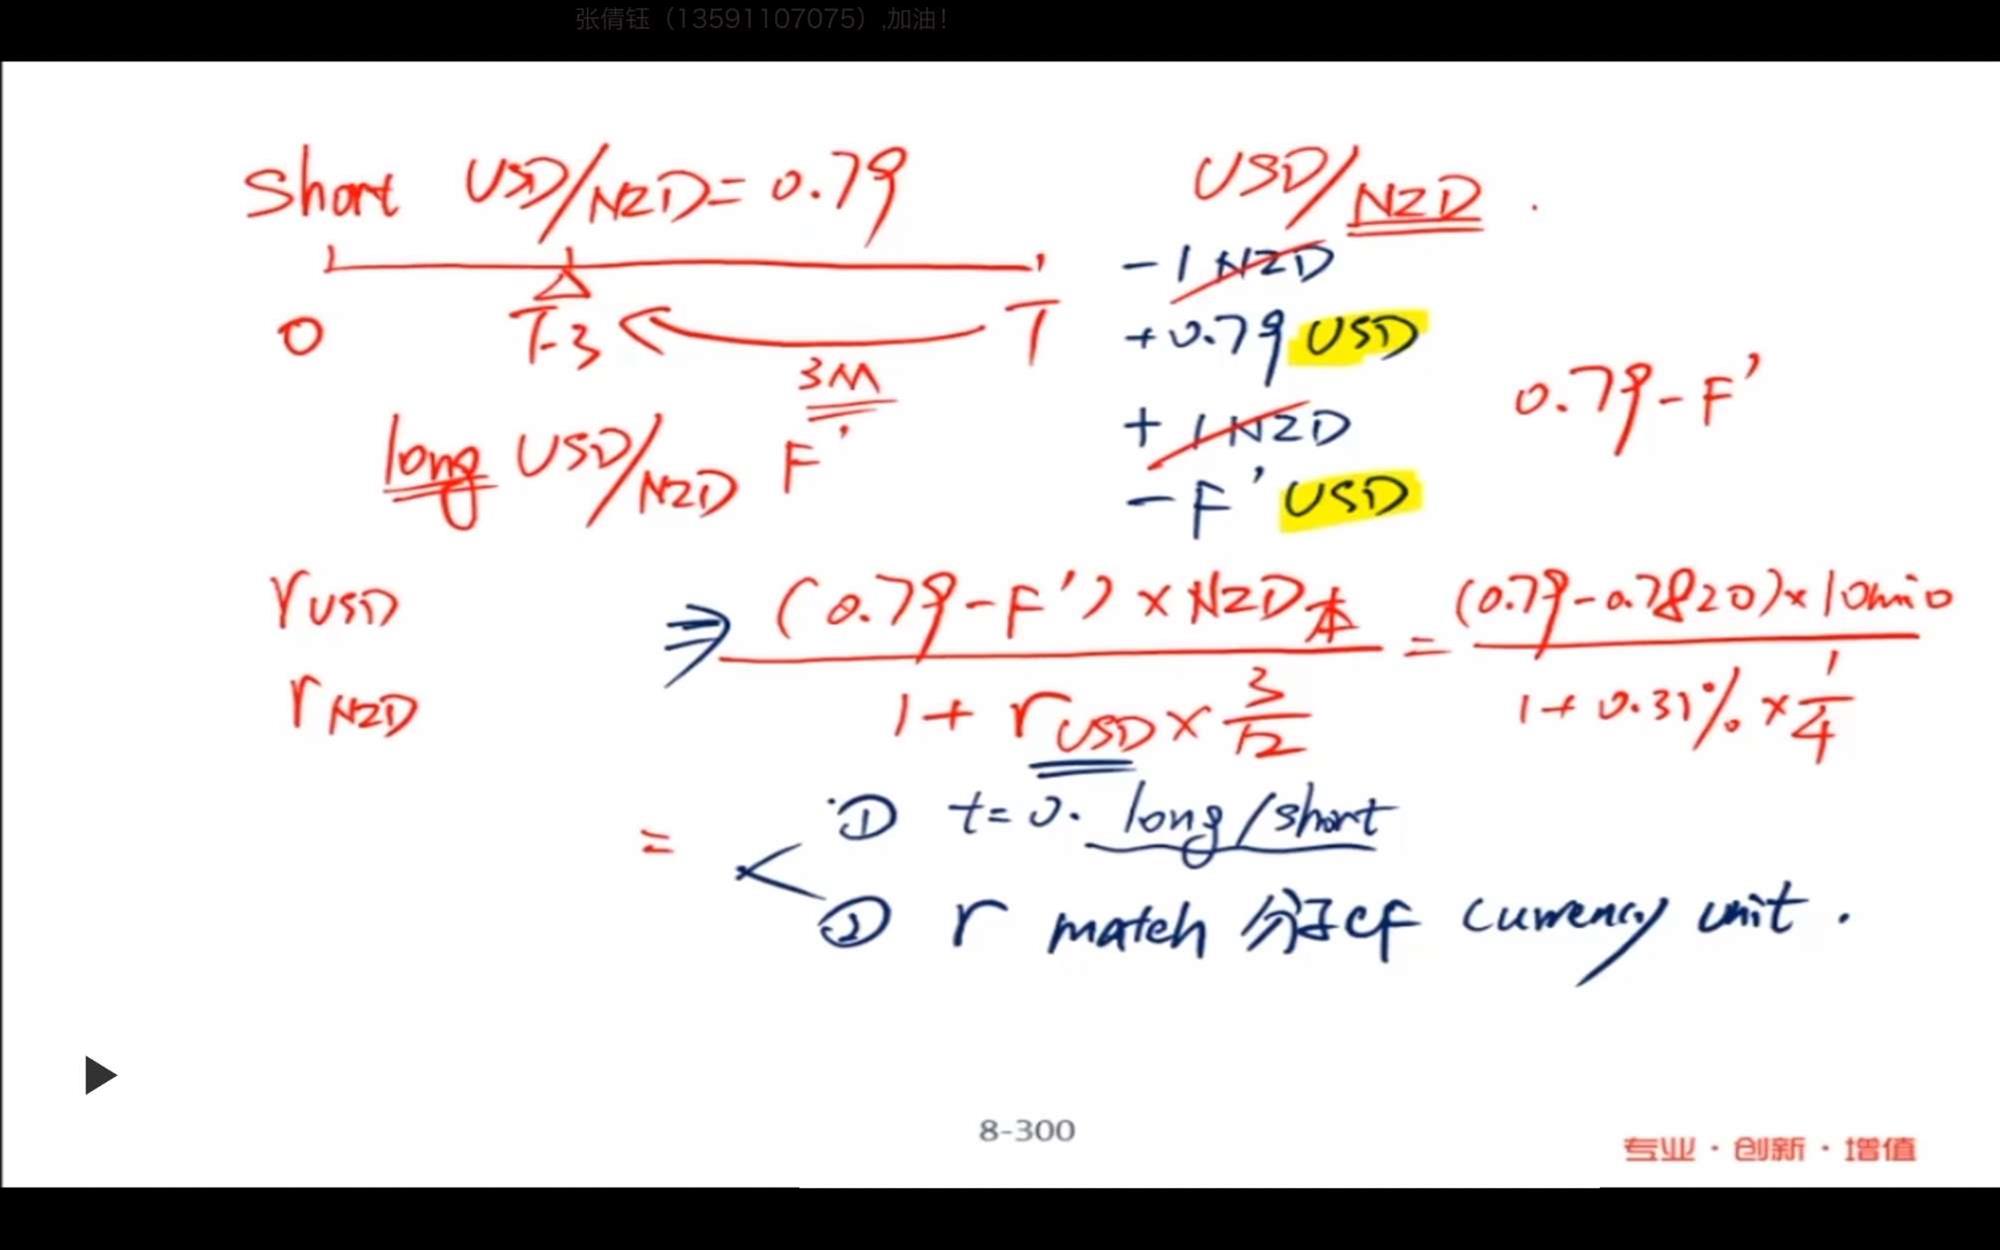 张倩钰（13591107075）,加油！
short USD/NZD = 0.79
USD/NZD .
0 T-3 T
3M
long USD/NZD F'
-1 NZD
+0.79 USD
+1 NZD
-F' USD
0.79-F'
rUSD
rNZD
⇒ (0.79-F')×NZD本 / 1+rUSD×3/12 = (0.79-0.7820)×10mio / 1+0.31%×1/4
=
① t=0. long/short
② r match 分子CF currency unit.
8-300
专业·创新·增值